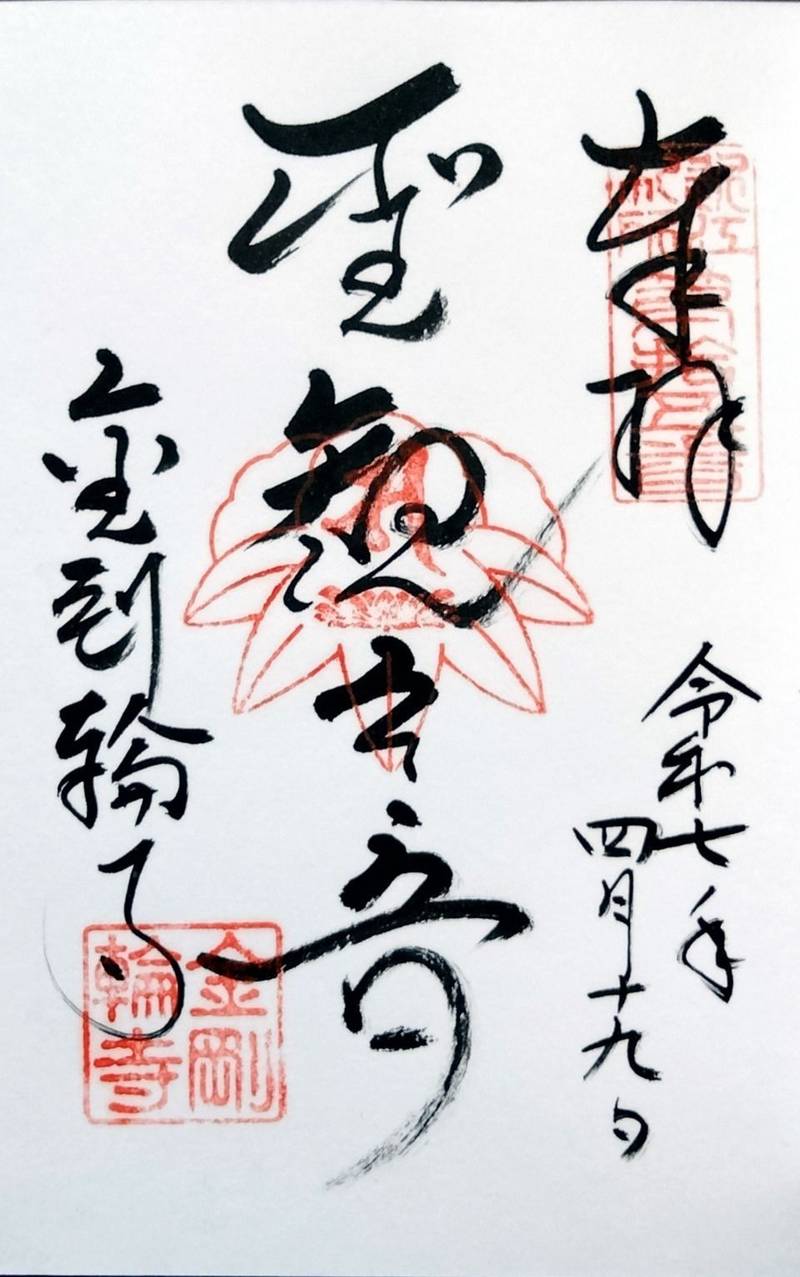 奉拝
令和七年
四月十九日
聖観世音
金剛輪寺
金剛
輪寺